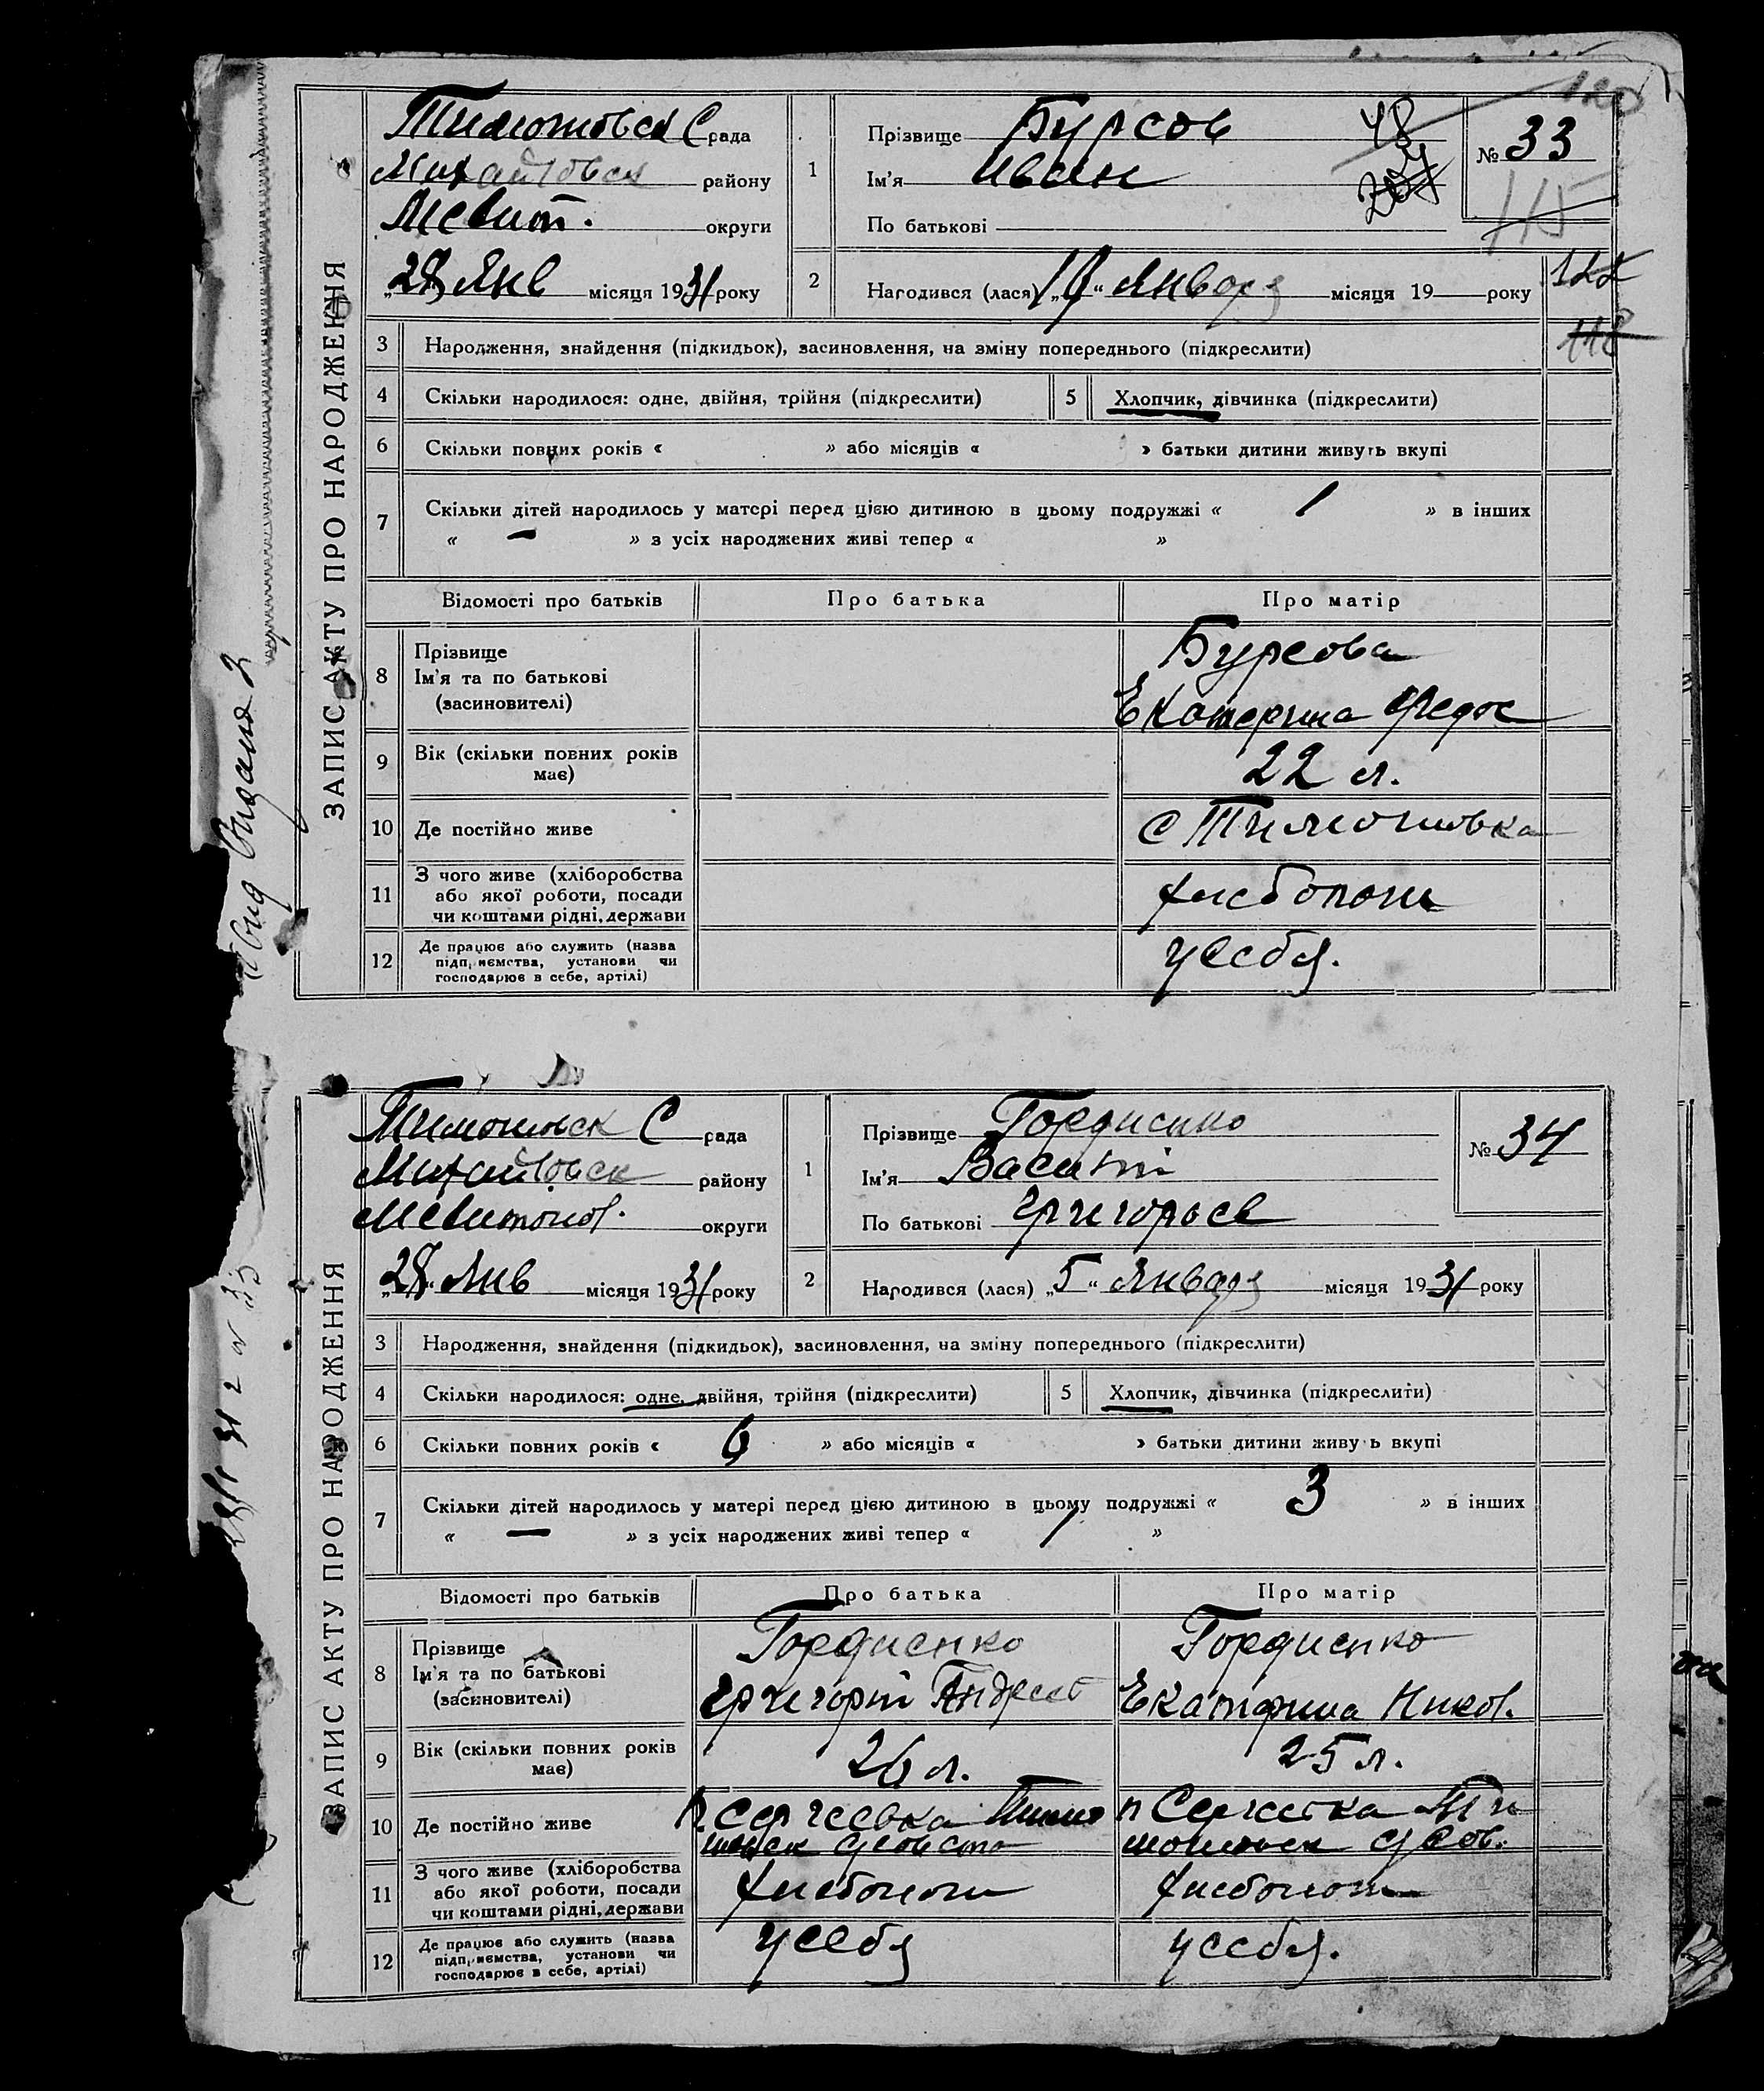 ЗАПИС АКТУ ПРО НАРОДЖЕННЯ
Тимошовск С рада
Михайловск району
Мелит. округи
„28 Янв місяця 1931 року
1
Прізвище Бурсов
Ім'я Иван
По батькові
48
207
120
№ 33
115
2
Народився (лася) „18“ Января місяця 19 року
122
118
3 Народження, знайдення (підкидьок), засиновлення, на зміну попереднього (підкреслити)
4 Скільки народилося: одне, двійня, трійня (підкреслити) 5 Хлопчик, дівчинка (підкреслити)
6 Скільки повних років « » або місяців « » батьки дитини живуть вкупі
7 Скільки дітей народилось у матері перед цією дитиною в цьому подружжі « 1 » в інших
« — » з усіх народжених живі тепер « »
Відомості про батьків Про батька Про матір
8 Прізвище
Ім'я та по батькові
(засиновителі)
Бурсова
Екатерина Федос
9 Вік (скільки повних років
має)
22 л.
10 Де постійно живе
с Тимошовка
11 З чого живе (хліборобства
або якої роботи, посади
чи коштами рідні, держави
хлебопаш
12 Де працює або служить (назва
підприємства, установи чи
господарює в себе, артілі)
у себя.
ЗАПИС АКТУ ПРО НАРОДЖЕННЯ
Тимошовск С рада
Михайловск району
Мелитопол. округи
„28“ Янв місяця 1931 року
1
Прізвище Гордиенко
Ім'я Василий
По батькові Григорьев
№ 34
2
Народився (лася) „5“ Января місяця 1931 року
3 Народження, знайдення (підкидьок), засиновлення, на зміну попереднього (підкреслити)
4 Скільки народилося: одне, двійня, трійня (підкреслити) 5 Хлопчик, дівчинка (підкреслити)
6 Скільки повних років « 6 » або місяців « » батьки дитини живуть вкупі
7 Скільки дітей народилось у матері перед цією дитиною в цьому подружжі « 3 » в інших
« — » з усіх народжених живі тепер « 1 »
Відомості про батьків Про батька Про матір
8 Прізвище
Ім'я та по батькові
(засиновителі)
Гордиенко
Григорий Андреев
Гордиенко
Екатерина Никол.
9 Вік (скільки повних років
має)
26 л. 25 л.
10 Де постійно живе
п. Сергеевка Тимо
шовск с/совета
п Сергеевка Ти
мошовск с/сов.
11 З чого живе (хліборобства
або якої роботи, посади
чи коштами рідні, держави
хлебопаш хлебопаш
12 Де працює або служить (назва
підприємства, установи чи
господарює в себе, артілі)
у себя у себя.